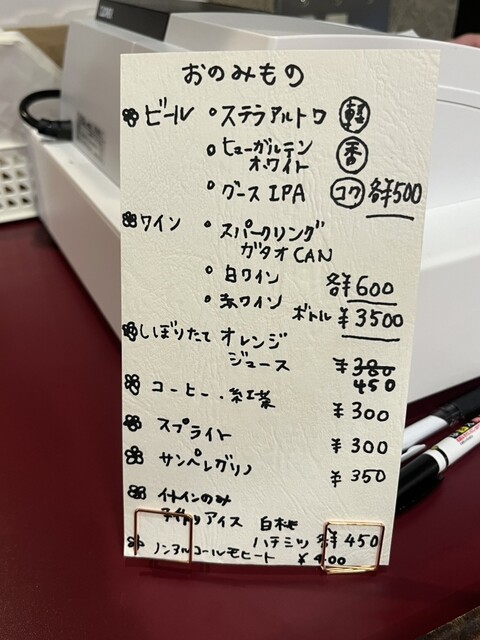 おのみもの
ビール ステラアルトワ 軽
ヒューガルデン
ホワイト 香
グースIPA コク 各¥500
ワイン スパークリング
ガタオCAN
白ワイン 各¥600
赤ワイン ボトル ¥3500
しぼりたて オレンジ
ジュース ¥380
450
コーヒー・紅茶 ¥300
スプライト ¥300
サンペレグリノ ¥350
イートインのみ
手作りアイス 白桃
ハチミツ 各¥450
ノンアルコールモヒート ¥400